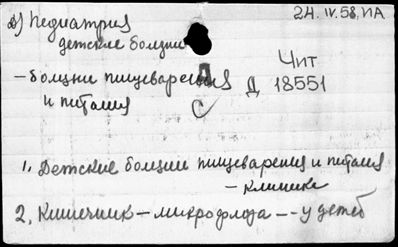 24. IV. 58, ИА
в) Педиатрия
детские болезни
Чит
– болезни пищеварения
Д 18551
и питания
1. Детские болезни пищеварения и питания
– клиника
2. Кишечник – микрофлора – - у детей